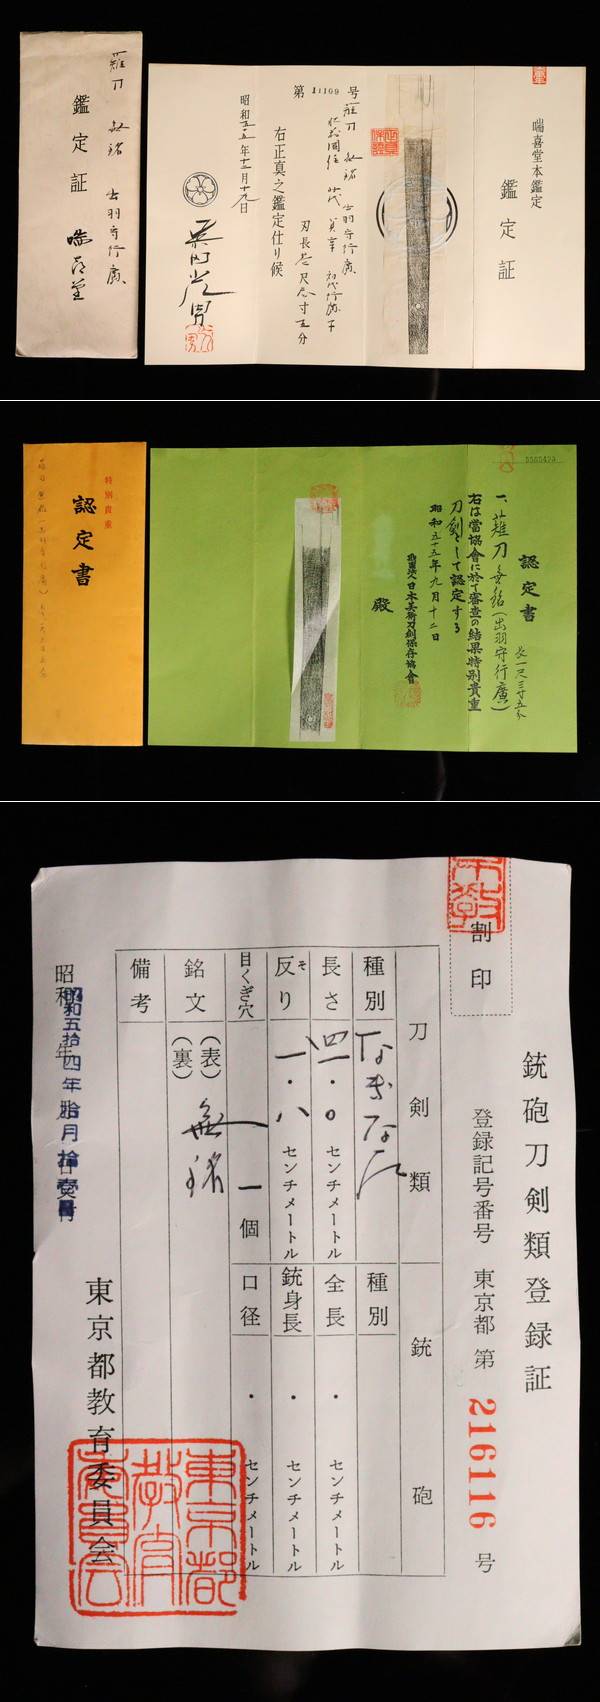 薙刀 無銘 出羽守行廣
鑑定証 喘喜堂
喘喜堂本鑑定
鑑定証
第 11109 号
薙刀 無銘 出羽守行廣
刃長壱尺参寸五分
右正真之鑑定仕り候
昭和五五年十二月十九日
特別貴重
認定書
5555423
認定書
一、薙刀 無銘(出羽守行廣)
長一尺三寸五分
右は當協會に於て審査の結果特別貴重
刀劍として認定する
昭和五十五年九月十二日
財團法人日本美術刀劍保存協會
殿
割印
銃砲刀剣類登録証
登録記号番号 東京都 第 216116 号
刀剣類
銃砲
種別 なぎなた
長さ 四一・〇 センチメートル
反り 一・八 センチメートル
そ
目くぎ穴 一個
銘文 (表) (裏) 無銘
備考
種別
全長 ・ センチメートル
銃身長 ・ センチメートル
口径 ・ センチメートル
昭和 年 月 日
昭和五拾四年
東京都教育委員会
東京都教育委員会